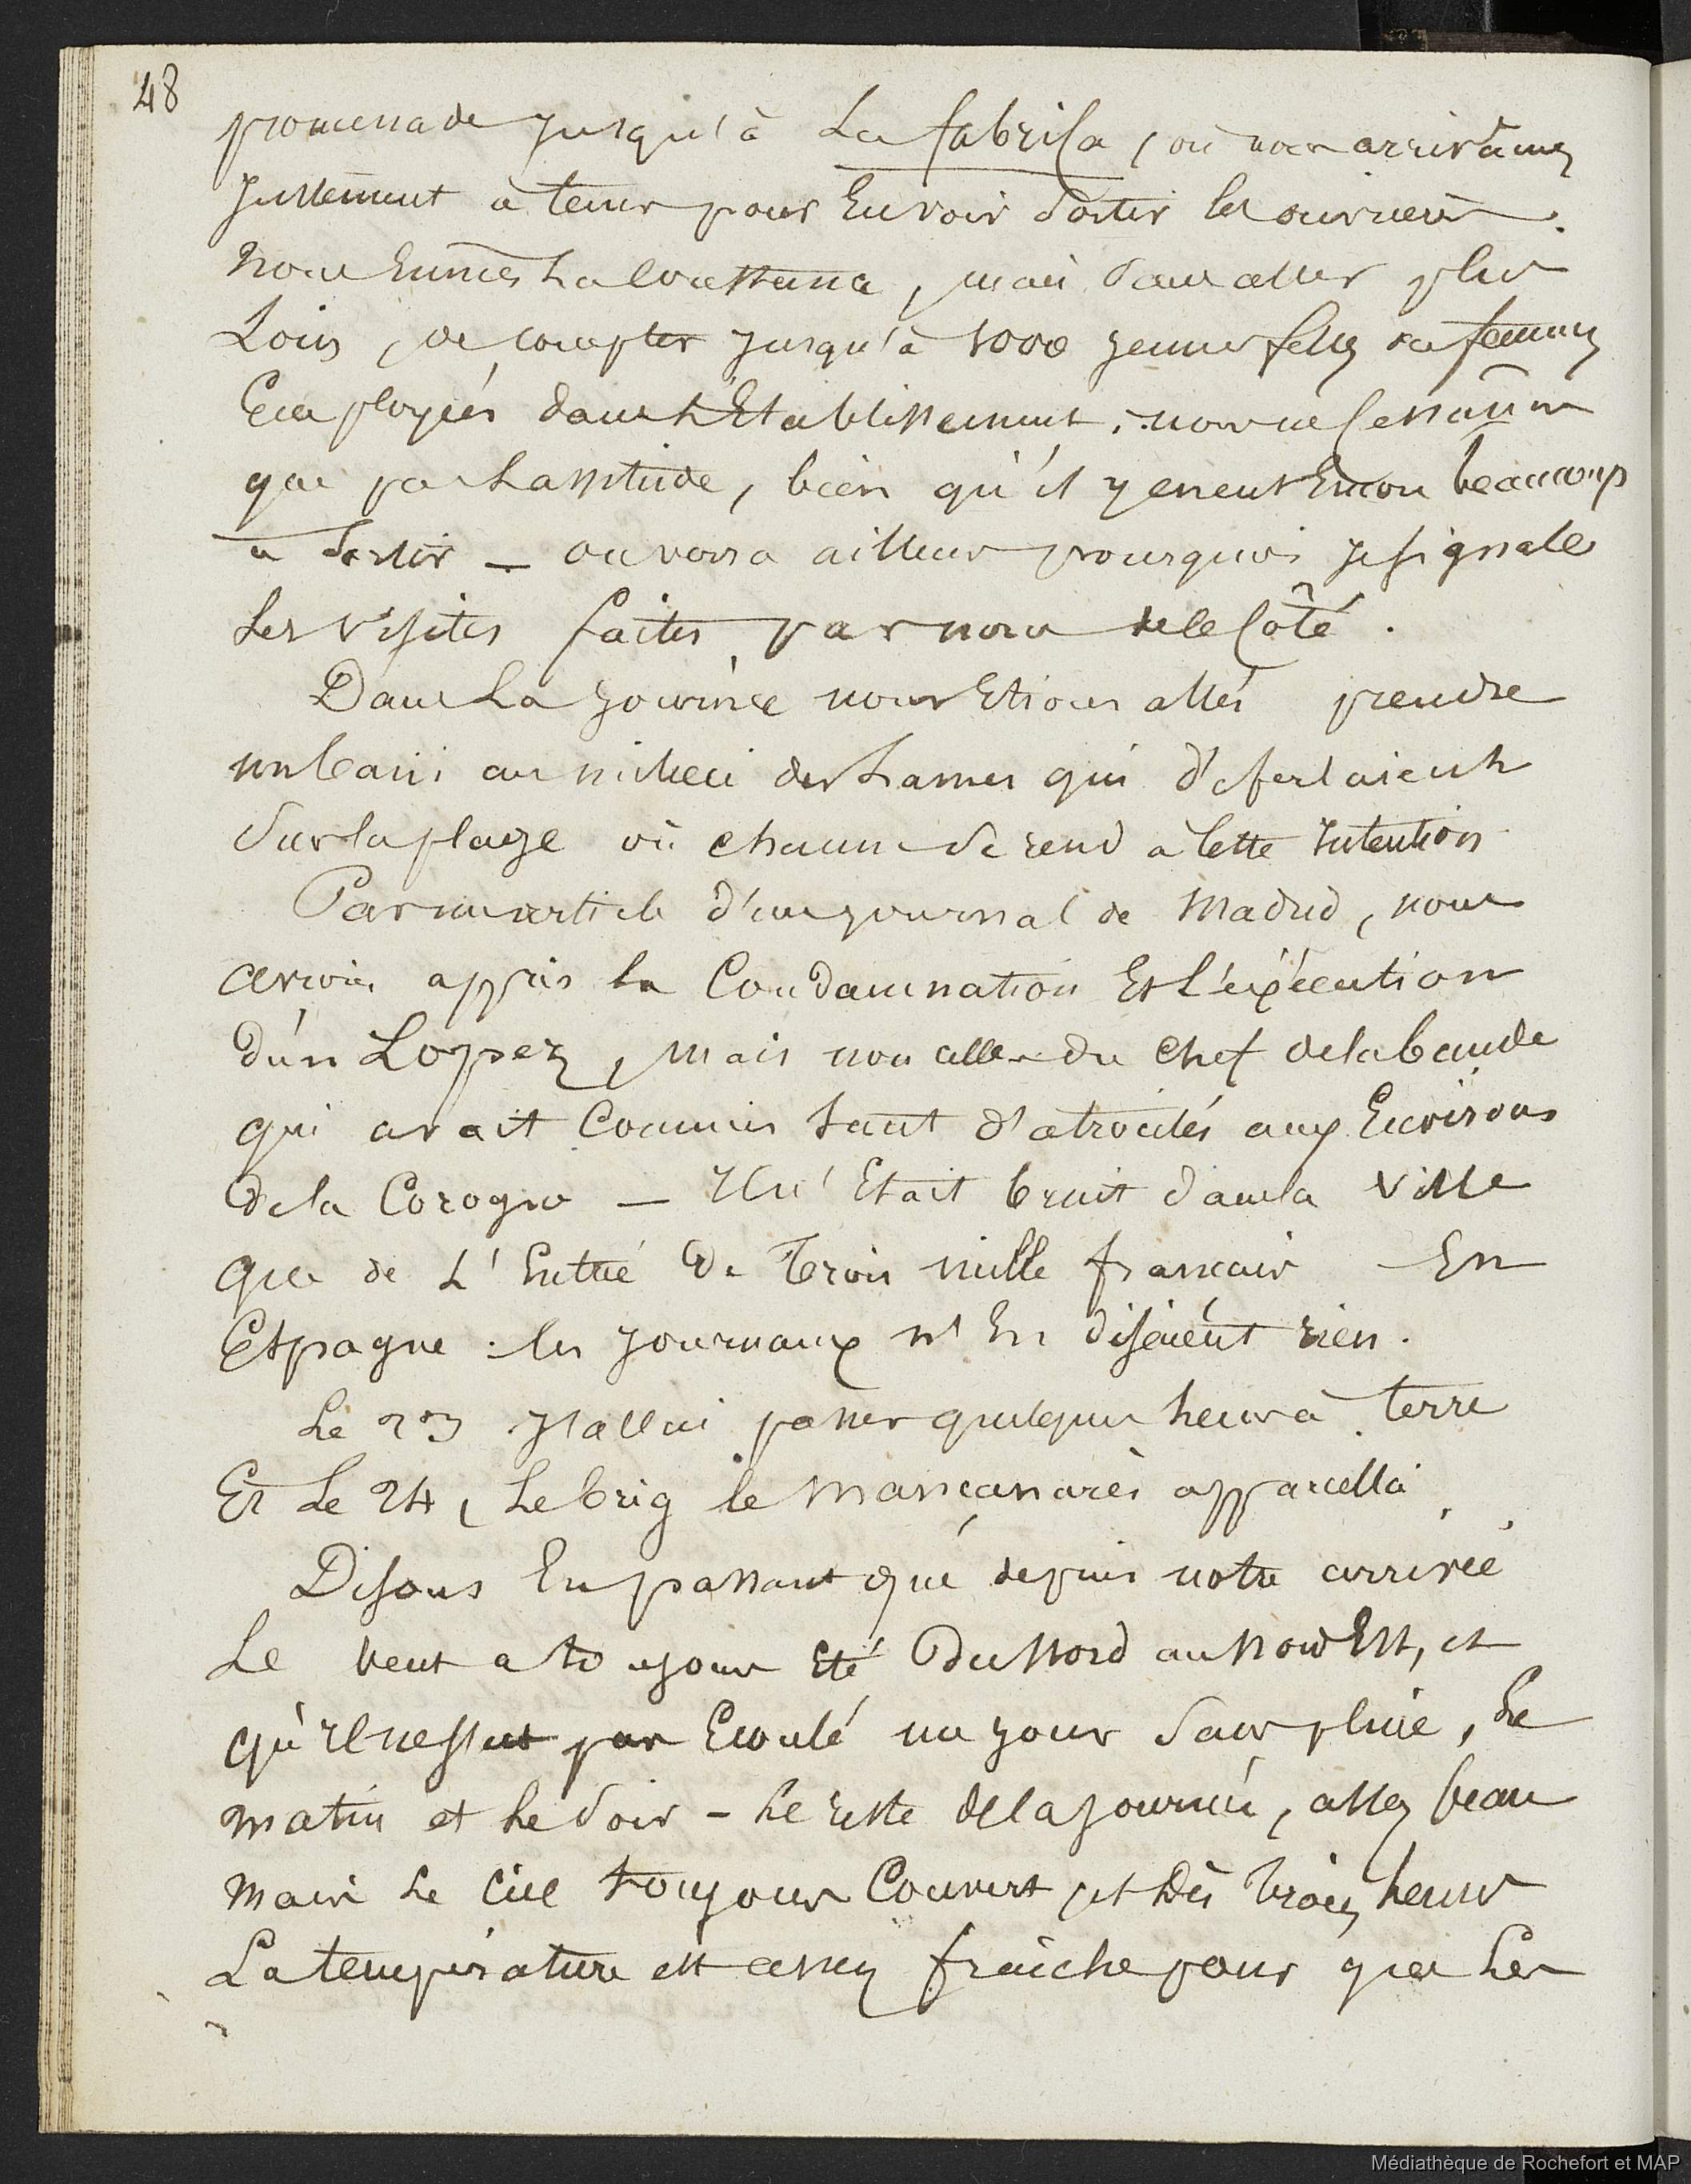 48
promenade jusqu'à La fabrica, où nous arrivâmes
justement à tems pour En voir sortir les ouvrières.
Nous Eumes La Constance, mais sans aller plus
Loin, de compter jusqu'à 1000 jeunes filles ou femmes
Employées dans L'Etablissement; nous ne Cessâmes
que par Lassitude, bien qu'il y en eut Encore beaucoup
à Sortir — on verra ailleurs pourquoi je signale
Les visites faites par nous de ce Côté.
Dans La journée nous Etions allés prendre
un bain au milieu des Lames qui déferlaient
Sur la plage où chacun se rend à Cette Intention
Par un article d'un journal de Madrid, nous
avions appris la Condamnation Et l'éxécution
d'un Lopez, mais non celle du chef de la bande
qui avait Commis tant d'atrocités aux Environs
de la Corogne — Il n'Etait bruit dans la ville
que de L'Entrée de Trois mille français En
Espagne: les journaux n'En disaient rien.
Le 23 j'allai passer quelques heures à terre
Et Le 24, Le brig le Mançanarès appareilla
Disons En passant que depuis notre arrivée
Le vent a toujours Eté du Nord au Nord Est, et
qu'il ne s'est pas Ecoulé un jour sans pluie, Le
matin et Le Soir – Le reste de la journée, assez beau
mais Le Ciel toujours Couvert, et Dès trois heures
La température est assez fraiche pour que Les
Médiathèque de Rochefort et MAP